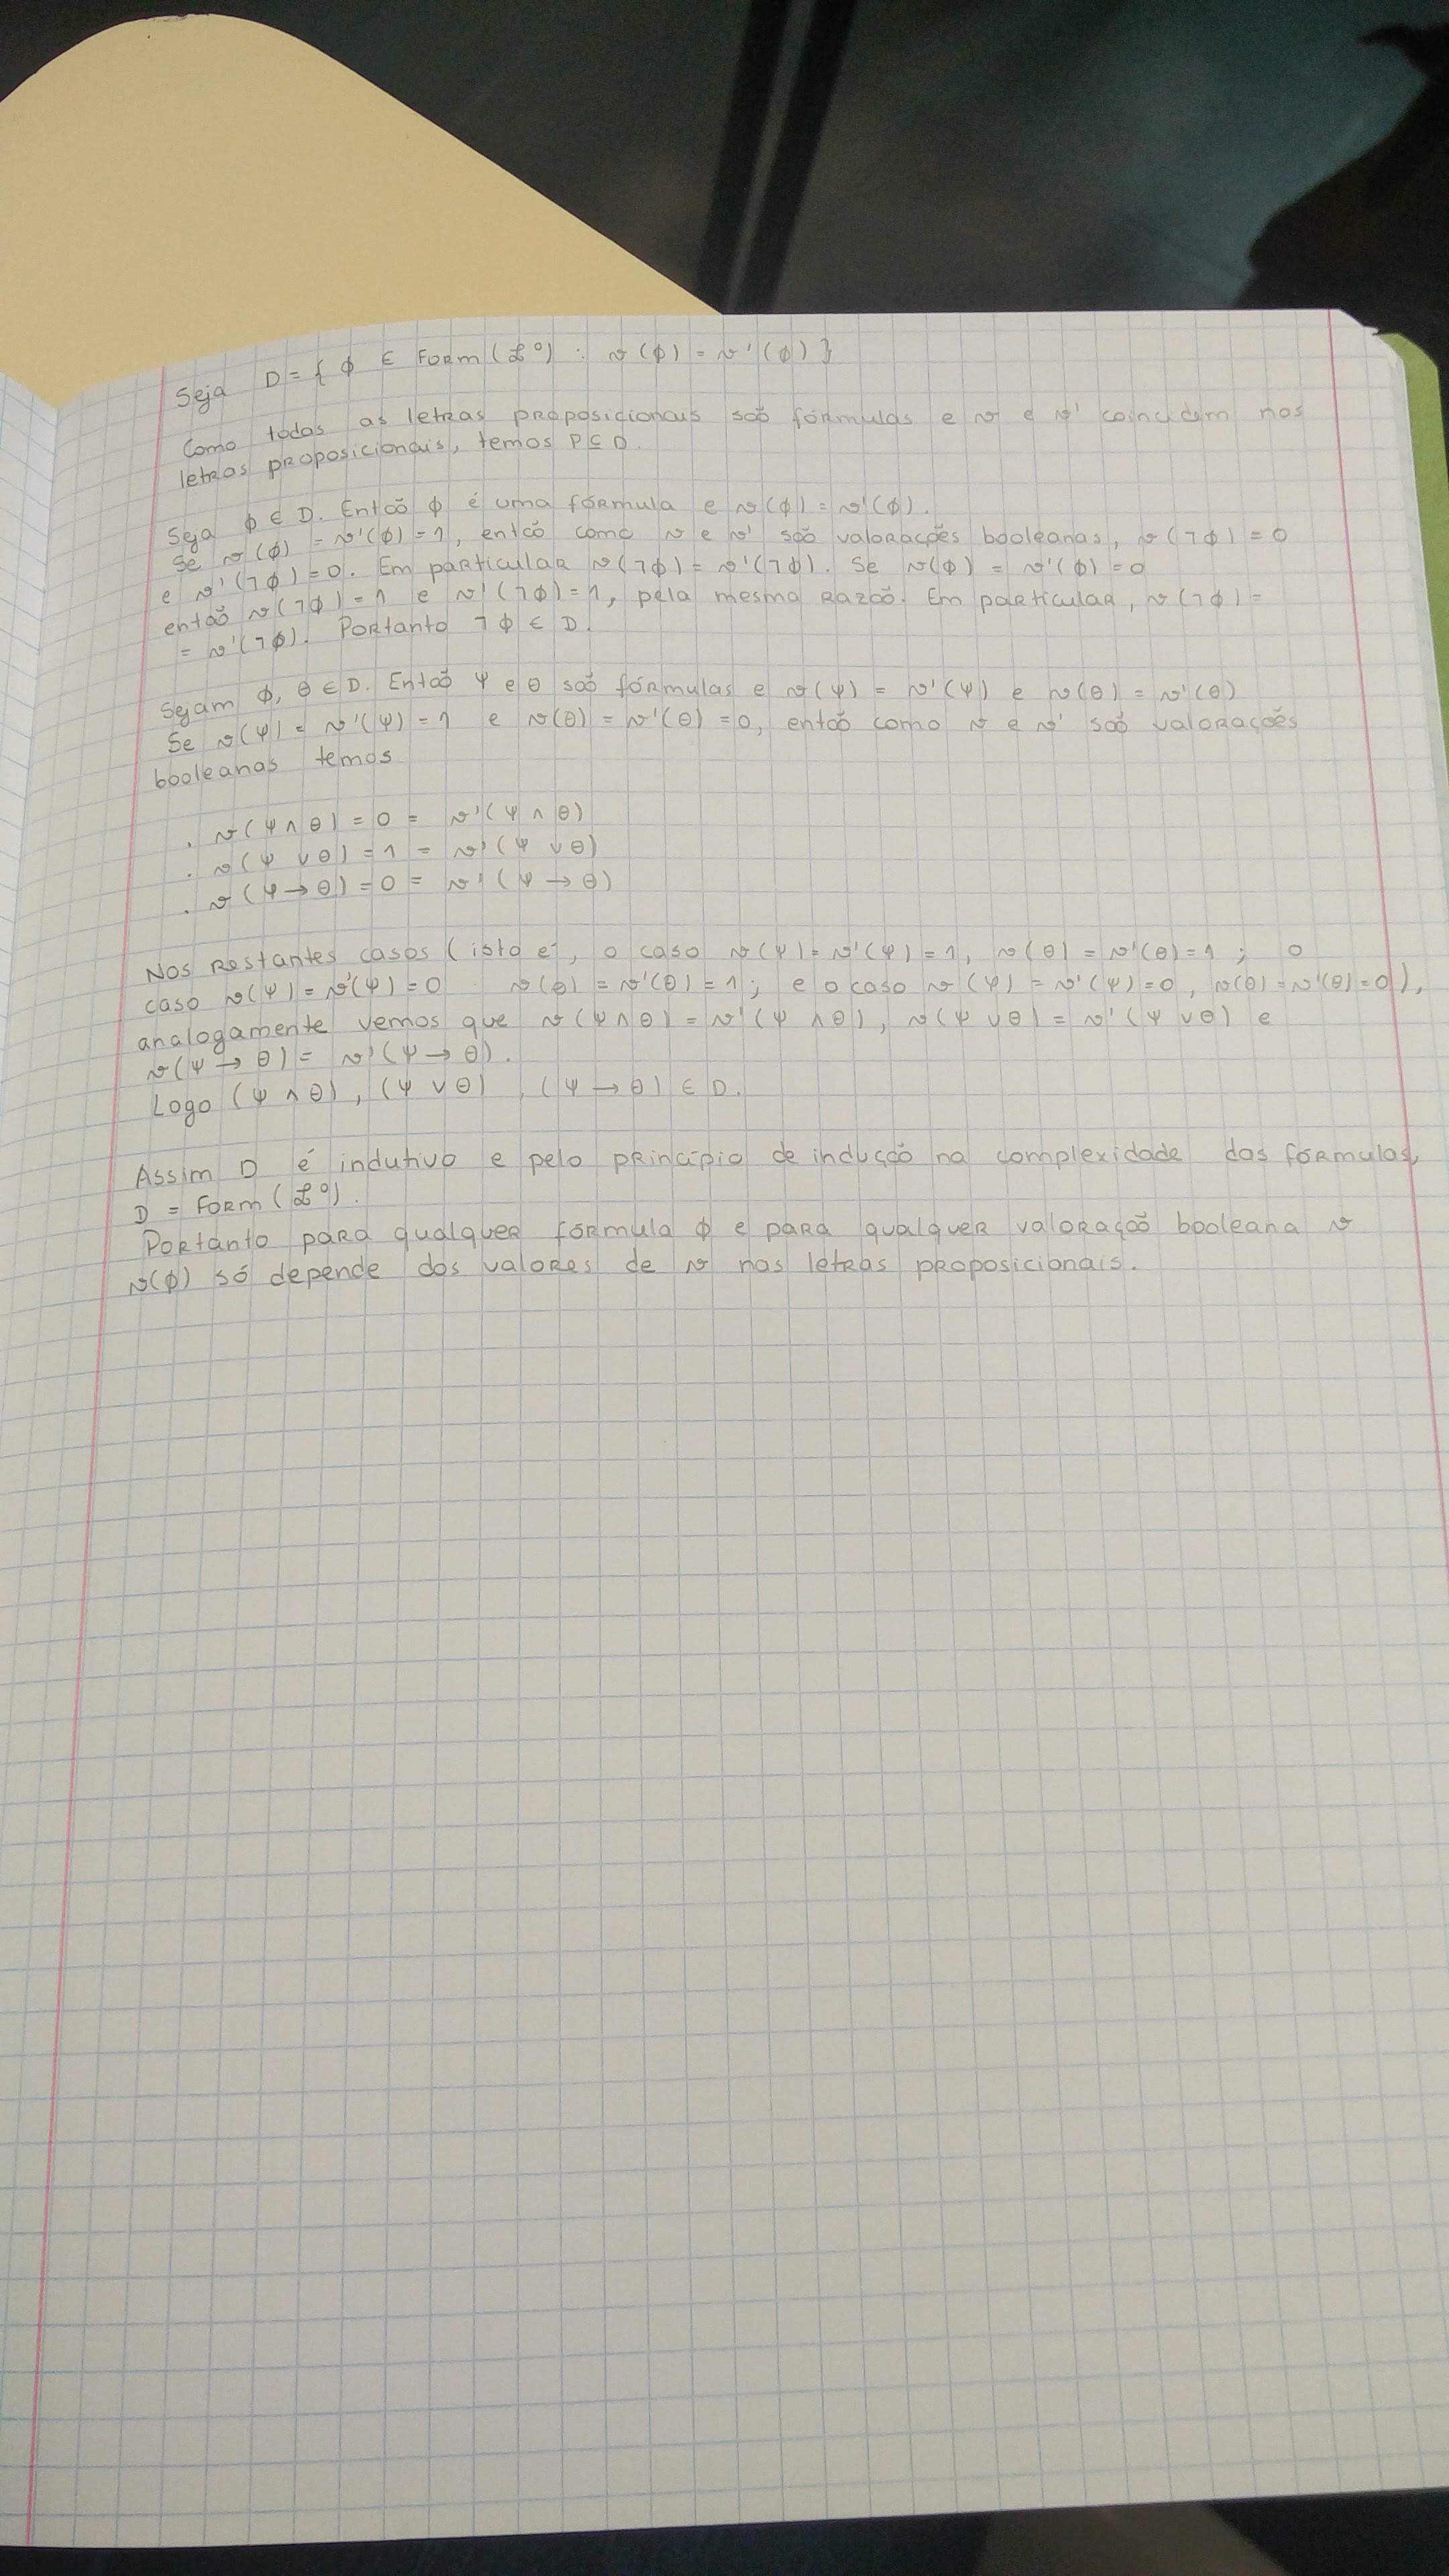 Seja D = { ϕ ∈ Form(ℒ⁰) : v(ϕ) = v'(ϕ) }
Como todas as letras proposicionais são fórmulas e v e v' coincidem nas
letras proposicionais, temos P ⊆ D.
Seja ϕ ∈ D. Então ϕ é uma fórmula e v(ϕ) = v'(ϕ).
Se v(ϕ) = v'(ϕ) = 1, então como v e v' são valorações booleanas, v(¬ϕ) = 0
e v'(¬ϕ) = 0. Em particular v(¬ϕ) = v'(¬ϕ). Se v(ϕ) = v'(ϕ) = 0
então v(¬ϕ) = 1 e v'(¬ϕ) = 1, pela mesma razão. Em particular, v(¬ϕ) =
= v'(¬ϕ). Portanto ¬ϕ ∈ D.
Sejam ϕ, θ ∈ D. Então ψ e θ são fórmulas e v(ψ) = v'(ψ) e v(θ) = v'(θ)
Se v(ψ) = v'(ψ) = 1 e v(θ) = v'(θ) = 0, então como v e v' são valorações
booleanas temos
. v(ψ ∧ θ) = 0 = v'(ψ ∧ θ)
. v(ψ ∨ θ) = 1 = v'(ψ ∨ θ)
. v(ψ → θ) = 0 = v'(ψ → θ)
Nos restantes casos (isto é, o caso v(ψ) = v'(ψ) = 1, v(θ) = v'(θ) = 1 ; o
caso v(ψ) = v'(ψ) = 0 v(θ) = v'(θ) = 1 ; e o caso v(ψ) = v'(ψ) = 0, v(θ) = v'(θ) = 0),
analogamente vemos que v(ψ ∧ θ) = v'(ψ ∧ θ), v(ψ ∨ θ) = v'(ψ ∨ θ) e
v(ψ → θ) = v'(ψ → θ).
Logo (ψ ∧ θ), (ψ ∨ θ), (ψ → θ) ∈ D.
Assim D é indutivo e pelo princípio de indução na complexidade das fórmulas,
D = Form(ℒ⁰).
Portanto para qualquer fórmula ϕ e para qualquer valoração booleana v
v(ϕ) só depende dos valores de v nas letras proposicionais.